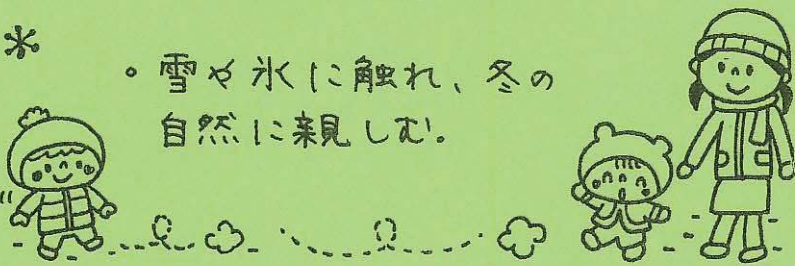 。雪や氷に触れ、冬の
自然に親しむ。